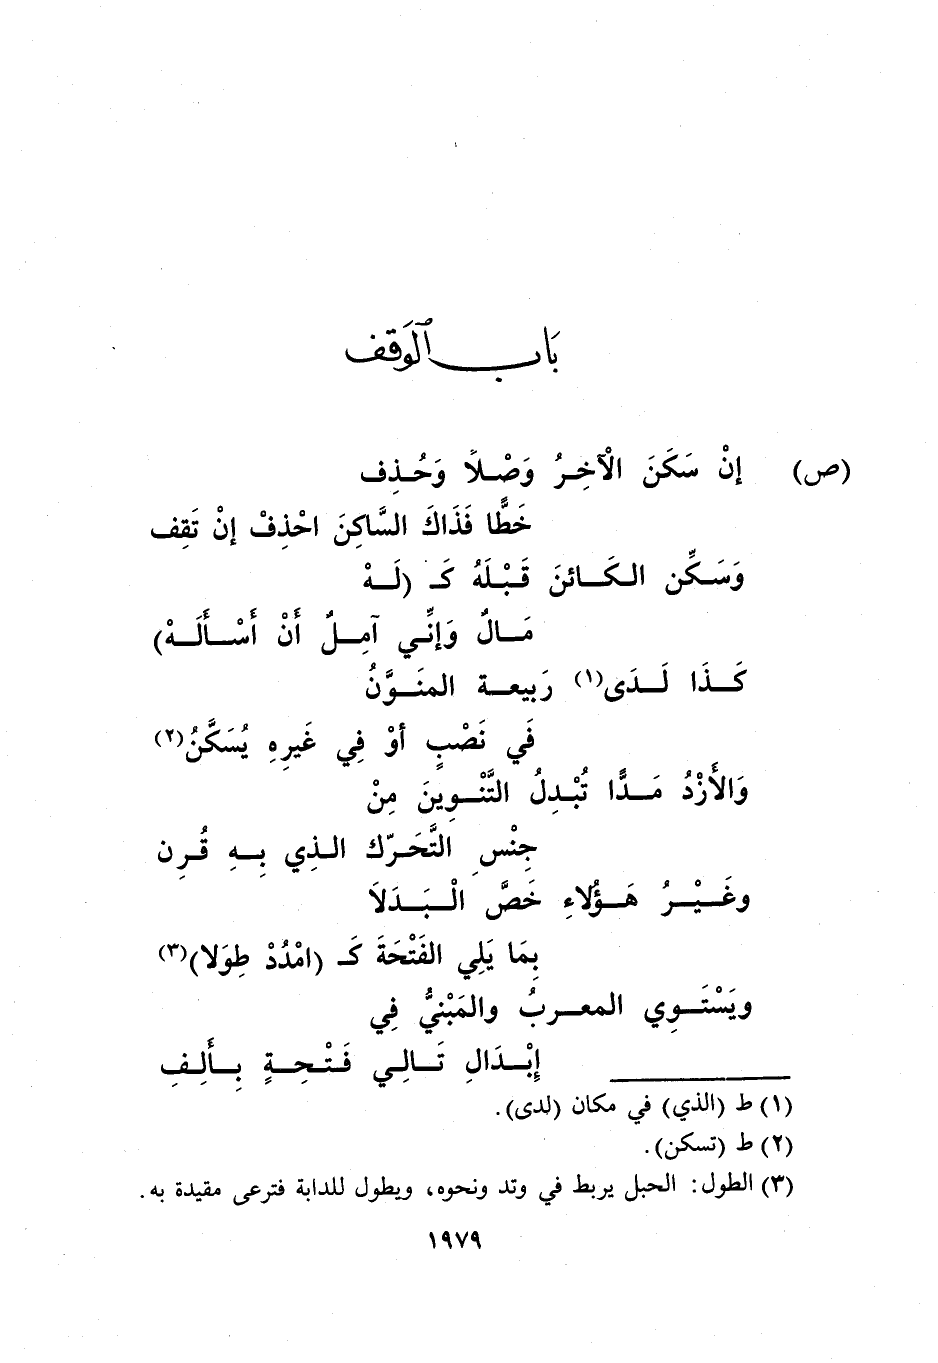 بَاب الوَقف
(ص) إنْ سَكَنَ الْآخِرُ وَصْلًا وَحُذِف
خَطًّا فَذَاكَ السَّاكِنَ احْذِفْ إنْ تَقِف
وَسَكِّن الكَائنَ قَبْلَهُ كَـ (لَهْ
مَالٌ وَإنِّي آمِلٌ أَنْ أَسْأَلَهْ)
كَذَا لَدَى(١) رَبيعة المنَوَّنُ
فَي نَصْبٍ أوْ فِي غَيرِهِ يُسَكَّنُ(٢)
وَالأَزْدُ مَدًّا تُبْدِلُ التَّنْوِينَ مِنْ
جِنْسِ التَّحَرّك الذِي بِهِ قُرِن
وغَيْرُ هَؤُلاءِ خَصَّ الْبَدَلاَ
بِمَا يَلِي الفَتْحَةَ كَـ (امْدُدْ طِوَلا)(٣)
ويَسْتَوِي المعربُ والمَبْنيُّ فِي
إبْدَالِ تَالِي فَتْحِةٍ بِأَلِفِ
(١) ط (الذي) في مكان (لدى).
(٢) ط (تسكن).
(٣) الطول: الحبل يربط في وتد ونحوه، ويطول للدابة فترعى مقيدة به.
١٩٧٩